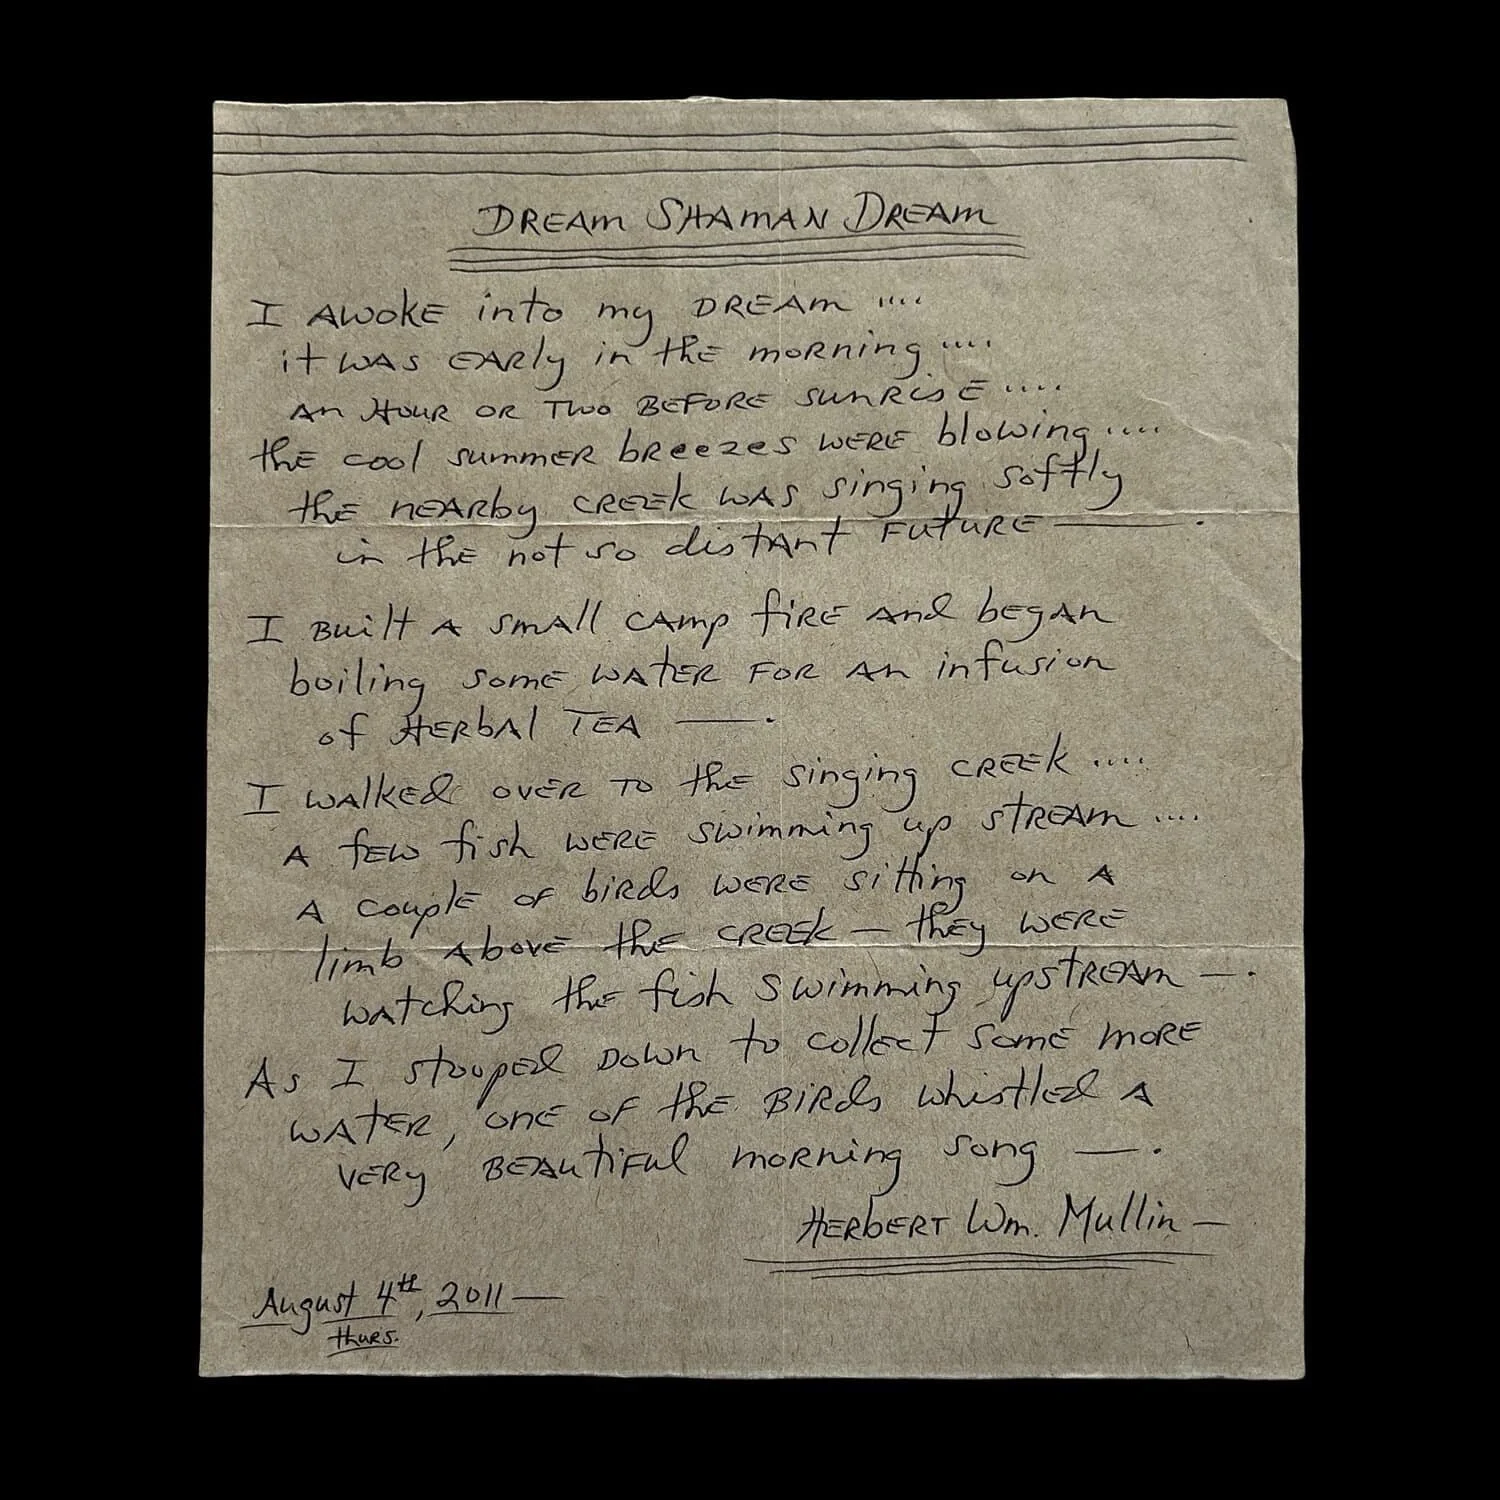 DREAM SHAMAN DREAM
I AWOKE into my DREAM ....
it WAS EARly in the morning ....
An Hour OR Two BEFORE SunRisE ....
the cool summer breezes WERE blowing ....
the nEARby CREEk WAS singing softly
in the not so distAnt FuturE —.
I Built A small CAmp fiRE And began
boiling some WATER FOR An infusion
of HERbAl TEA —.
I WAlked OVER TO the singing CREEk ....
A fEW fish WERE swimming up stREAm ....
A couple of biRds WERE sitting on A
limb Above the CREEk — they WERE
WAtching the fish swimming upstREAm —.
As I stooped Down to collect some moRE
WATER, one of the BiRds Whistled A
VERy BEAutiFul moRning song —.
HERbERT Wm. Mullin —
August 4th, 2011 —
thurs.